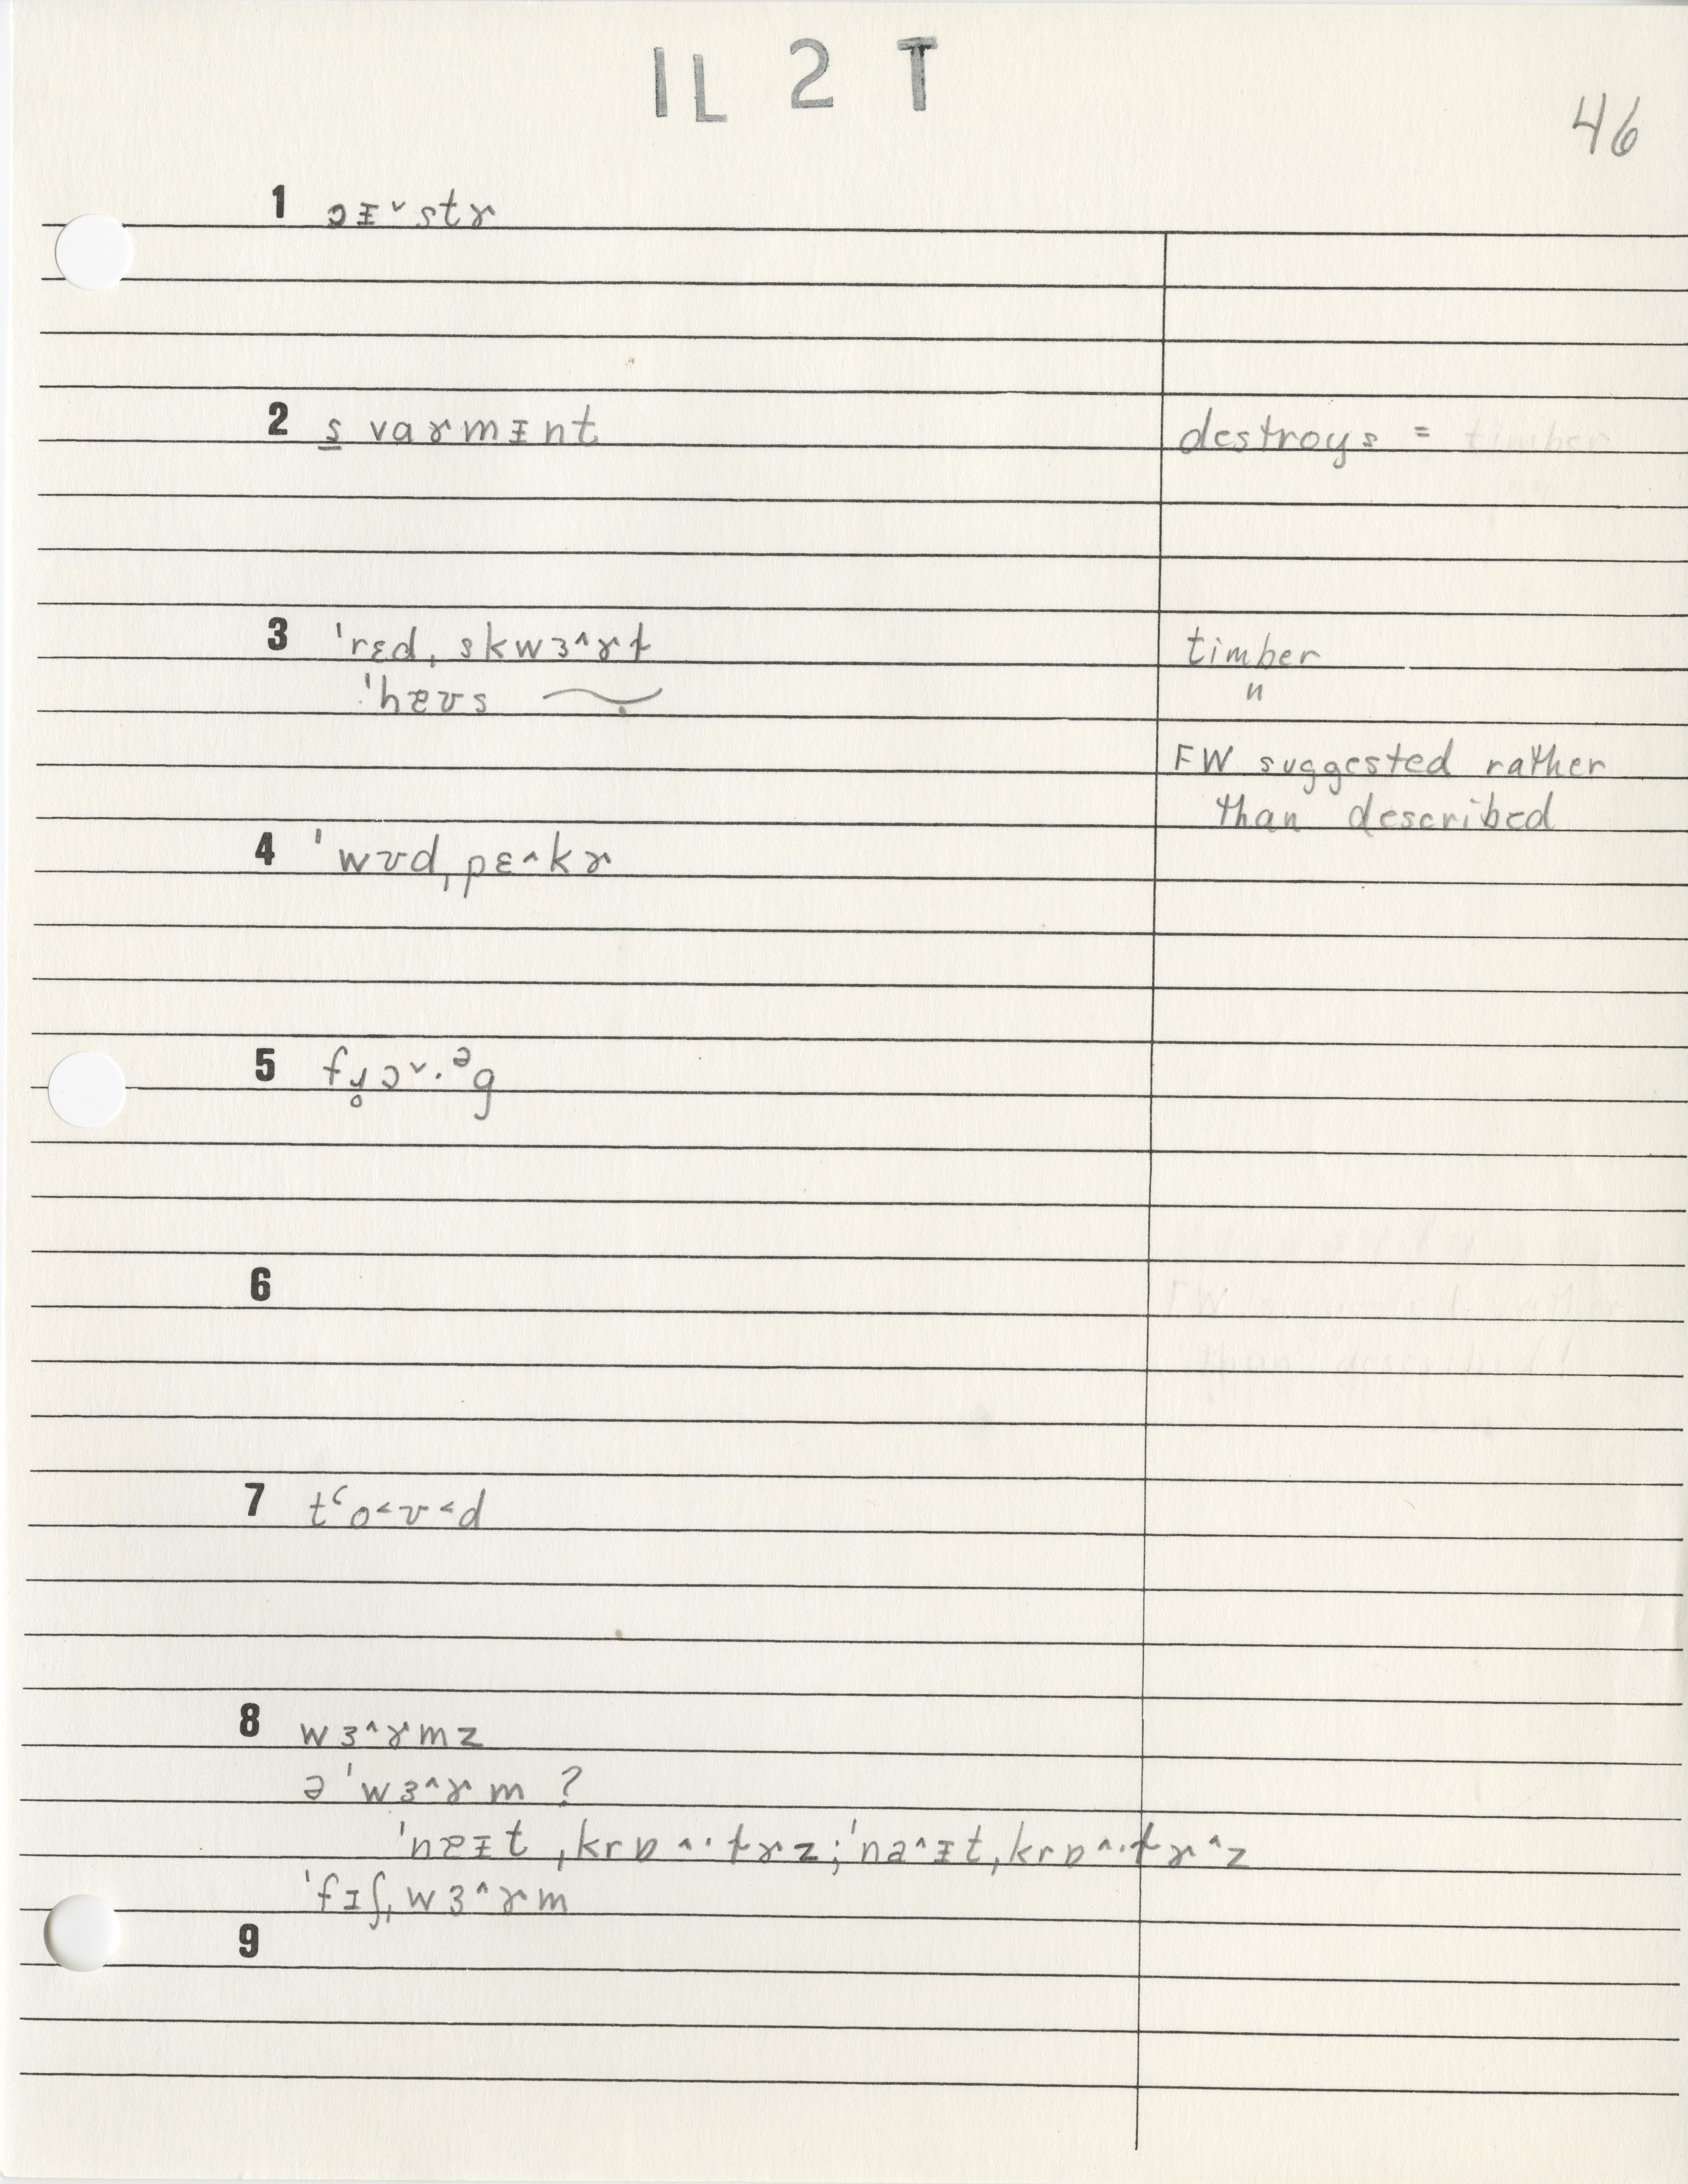 IL 2 T
46
1 ɔᵻ˅stɤ
2 s̲ vaɤmᵻnt
destroys =
3 ˈrɛd, skwɜ^ɤt̬
timber
ˈhæʊs ⁓
"
FW suggested rather
than described
4 ˈwʊd, pɛ^kɤ
5 fɹ̥ɔ˅·ᵊg
6
7 tʻo<ʊ<d
8 wɜ^ɤmz
ə ˈwɜ^ɤm ?
ˈnæᵻt ,krɒ^·t̬ɤz; ˈna^ᵻt, krɒ^·t̬ɤ^z
ˈfɪʃ, wɜ^ɤm
9